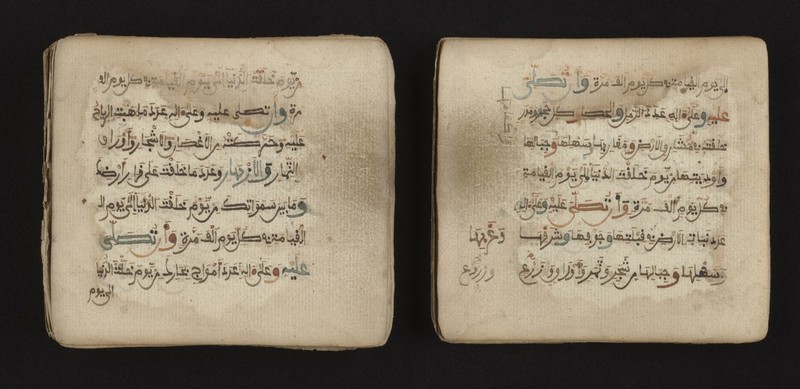 من يوم خلقت الدنيا الى يوم القيامة في كل يوم الف
مرة وان تصلى عليه وعلى اله عدد ما هبت الرياح
عليه وحركته من الاغصان والاشجار واوراق
الثمار والازهار وعدد ما خلقت على قرار ارضك
وما بين سمواتك من يوم خلقت الدنيا الى يوم ا
القيامة في كل يوم الف مرة وان تصلى
عليه وعلى اله عدد امواج بحارك من يوم خلقت الدنيا
الى يوم
الى يوم القيامة في كل يوم الف مرة وان تصلى
عليه وعلى اله عدد الرمل والحصى وكل حجر ومدر
خلقته في مشارق الارض ومغاربها سهلها وجبالها
واوديتها من يوم خلقت الدنيا الى يوم القيامة
في كل يوم الف مرة وان تصلى عليه وعلى اله
عدد نبات الارض في قبلتها وجوفها وشرقها وغربها
وسهلها وجبالها من شجر وثمر واوراق وزرع
وزروع